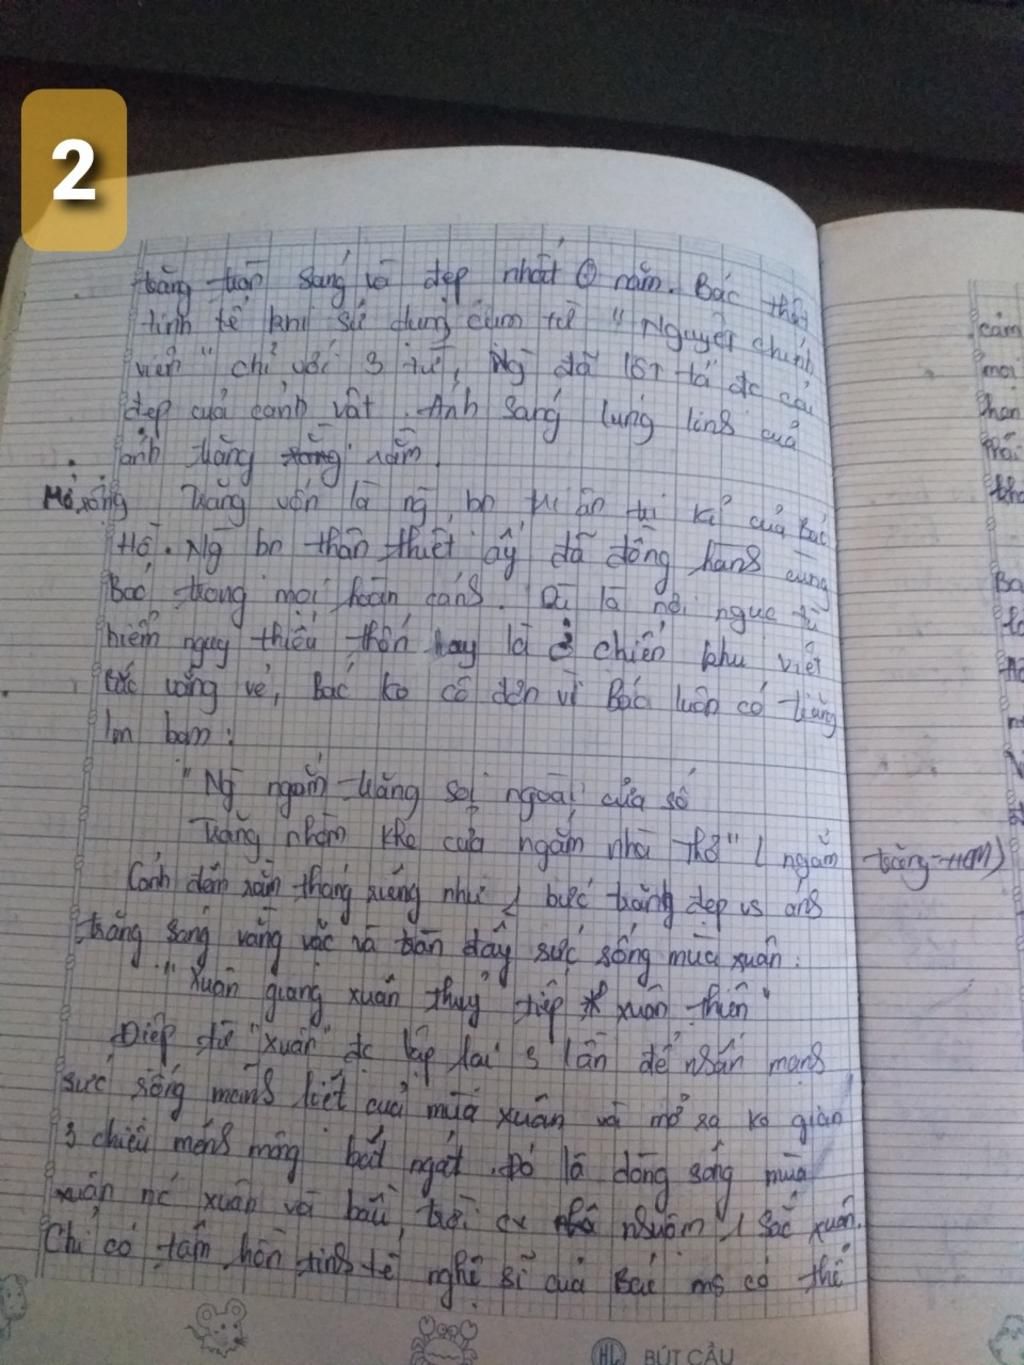 2
trăng tròn sáng và đẹp nhất 1 năm. Bác thật
tinh tế khi sử dụng cụm từ " Nguyệt chính
viên " chỉ với 3 từ, Ng đã lột tả đc cái
đẹp của cảnh vật. Ánh sáng lung linh của
ánh trăng rằm.
Mở rộng Trăng vốn là ng bn tri ân tri kỉ của Bác
Hồ. Ng bn thân thiết ấy đã đồng hành cùng
Bác trong mọi hoàn cảnh. Dù là nơi ngục tù
hiểm nguy thiếu thốn hay là ở chiến khu việt
bắc vắng vẻ, Bác ko cô đơn vì Bác luôn có trăng
lm bạn:
"Ng ngắm trăng soi ngoài cửa sổ
Trăng nhòm khe cửa ngắm nhà thơ" ( ngắm trăng-HCM)
Cảnh đêm rằm tháng riêng như 1 bức tranh đẹp vs ánh
trăng sáng vằng vặc và tràn đầy sức sống mùa xuân:
"Xuân giang xuân thuỷ tiếp xuân thiên"
Điệp từ "xuân" đc lặp lại 3 lần để nhấn mạnh
sức sống mãnh liệt của mùa xuân và mở ra ko gian
3 chiều mênh mông bát ngát. Đó là dòng sông mùa
xuân nc xuân và bầu trời cx nhuộm 1 sắc xuân.
Chỉ có tâm hồn tinh tế nghệ sĩ của Bác ms có thể
HL BÚT CẦU
cảm
mọi